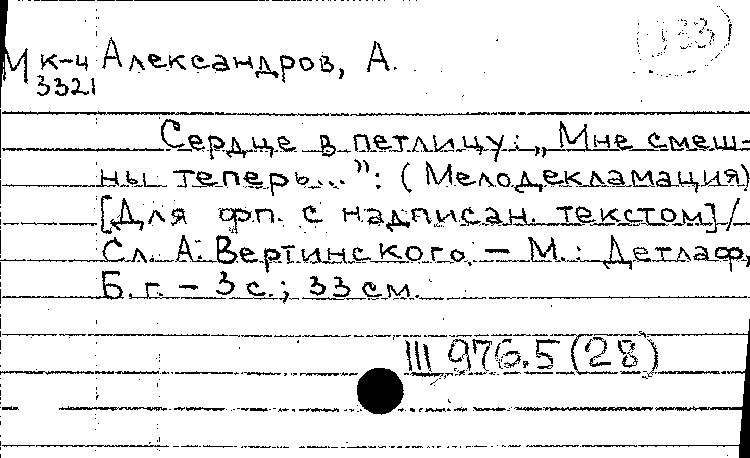 М к-ч Александров, А.
3321
933
Сердце в петлицу: „Мне смеш-
ны теперь...": (Мелодекламация)
[Для фп. с надписан. текстом] /
Сл. А. Вертинского. — М.: Детлаф,
Б. г. — 3 с.; 33 см.
III 976.5 (28)